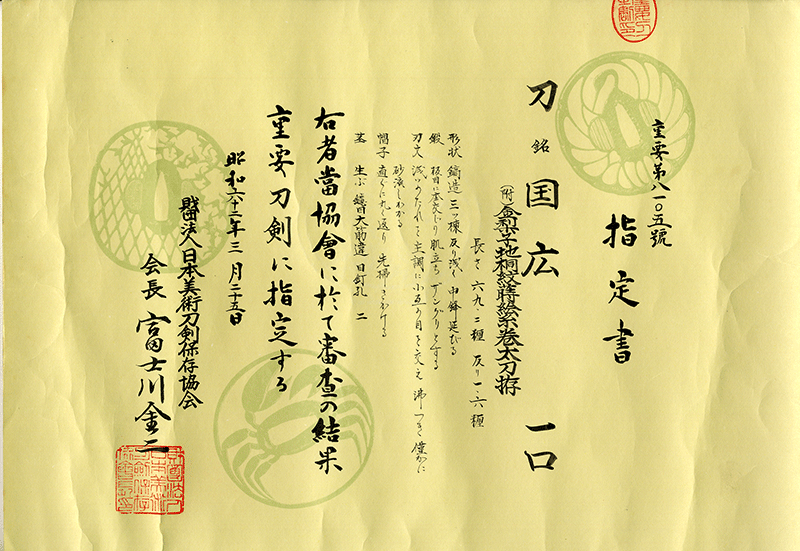 重要第八一〇五號
指定書
刀 銘 国広 一口
(附)金梨子地桐紋蒔絵糸巻太刀拵
長さ 六九・二糎 反り一・六糎
形状 鎬造 三ッ棟 反り浅く 中鋒延びる
鍛 板目に杢交じり 肌立ち ザングリとする
刃文 浅いのたれを主調に小互の目を交え 沸つき 僅かに
砂流しかかる
帽子 直ぐに丸く返り 先掃きかける
茎 生ぶ 鑢目大筋違 目釘孔 二
右者當協會に於て審査の結果
重要刀剣に指定する
昭和六十二年三月二十五日
財団法人日本美術刀剣保存協会
会長